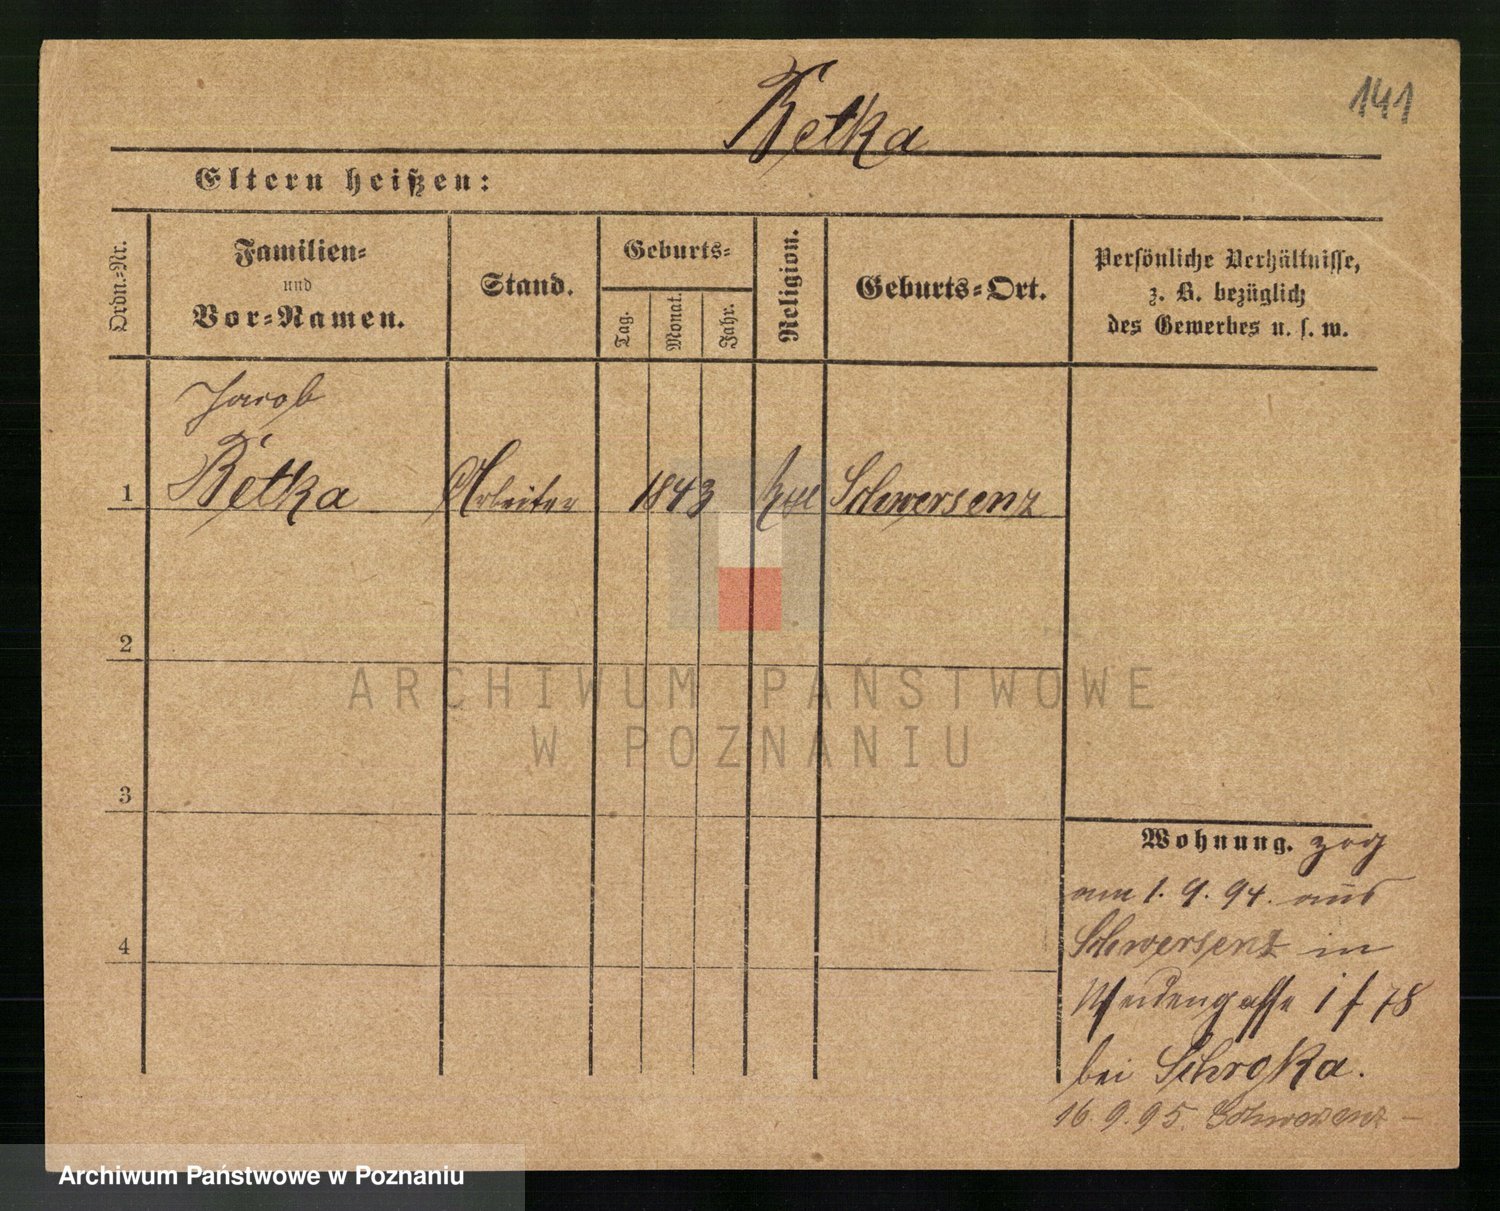 Retka
141
Eltern heißen:
Ordn.=Nr.
Familien=
und
Vor=Namen.
Stand.
Geburts=
Tag.
Monat.
Jahr.
Religion.
Geburts=Ort.
Persönliche Verhältnisse,
z. B. bezüglich
des Gewerbes u. s. w.
Jacob
1 Retka Arbeiter 1843 kath Schwersenz
2
3
4
Wohnung. zog
am 1. 9. 94. aus
Schwersenz in
Weidengasse 78
bei Schroka.
16. 9. 95. Schwersenz
ARCHIWUM PAŃSTWOWE
W POZNANIU
Archiwum Państwowe w Poznaniu